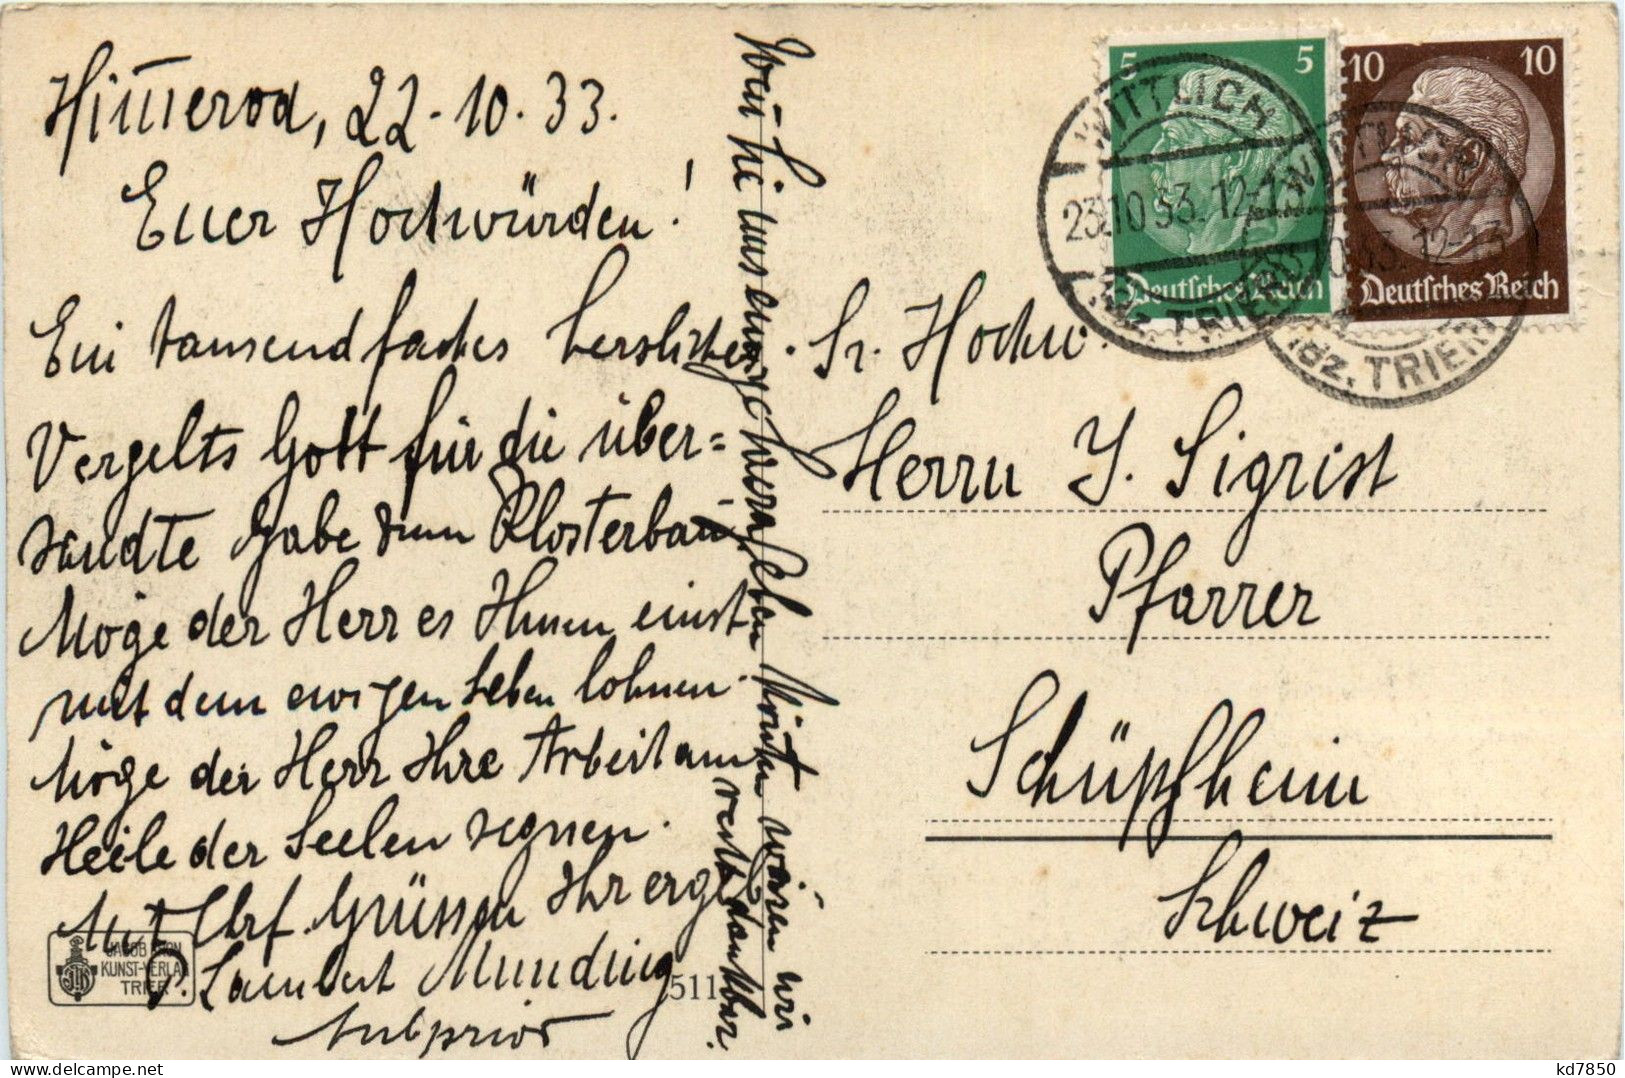 Himmerod, 22.10.33.
Euer Hochwürden!
Ein tausendfaches herzliches
Vergelts Gott für die über=
sandte Gabe zum Klosterbau.
Möge der Herr es Ihnen einst
mit dem ewigen Leben lohnen.
Möge der Herr Ihre Arbeit am
Heile der Seelen segnen.
Mit Ehrf. Grüssen Ihr erge
P. Lambert Munding
Subprior
Wenn Sie uns einige
könnten wären wir
recht dankbar.
Sr. Hochw.
Herrn J. Sigrist
Pfarrer
Schüpfheim
Schweiz
5 5
Deutsches Reich
10 10
Deutsches Reich
WITTLICH
23.10.33.12-13
Bz. TRIER
WITTLICH
23.10.33.12-13
Bz. TRIER
JACOB
KUNST-VERLAG
TRIER
511
delcampe.net
kd7850